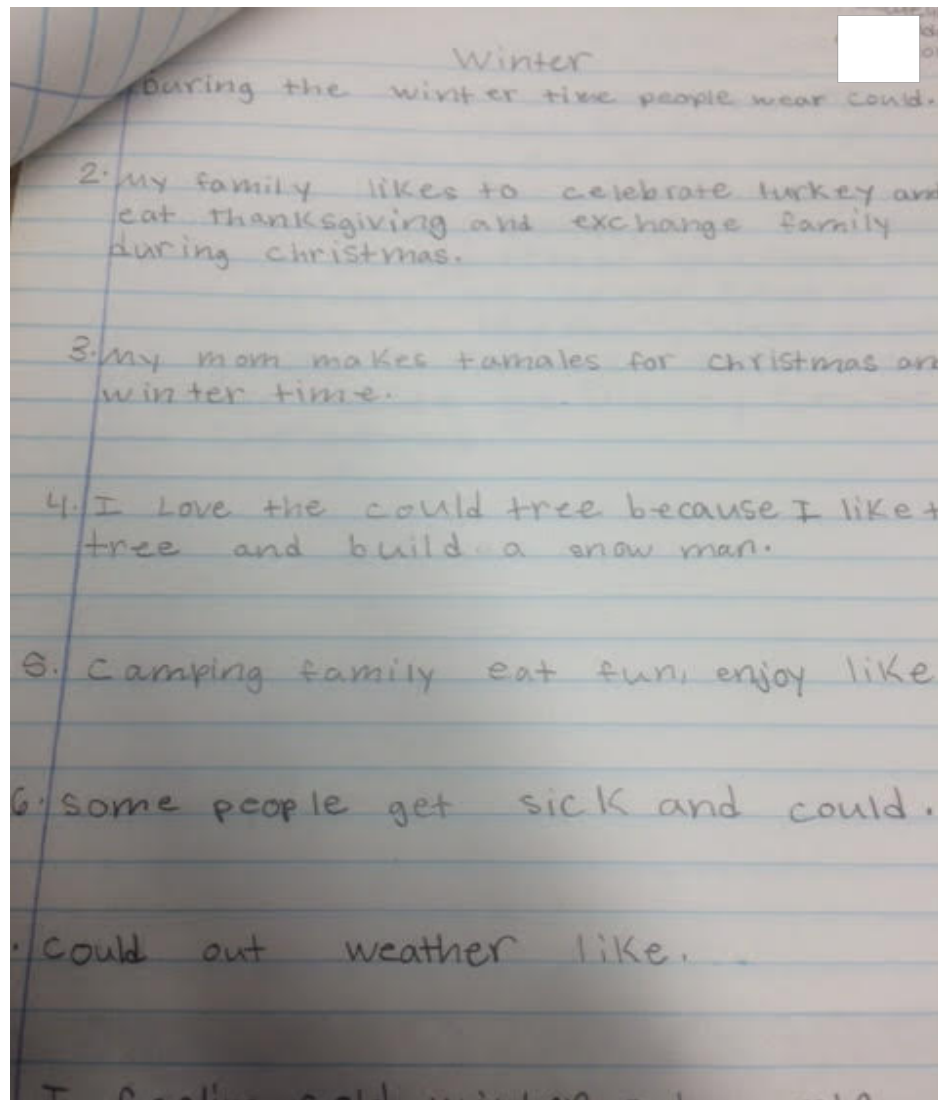 Winter
During the winter time people wear could.
2. My family likes to celebrate turkey and
eat thanksgiving and exchange family
during christmas.
3. My mom makes tamales for christmas an
winter time.
4. I Love the could tree because I like t
tree and build a snow man.
5. Camping family eat fun, enjoy like
6. some people get sick and could.
. could out weather like.